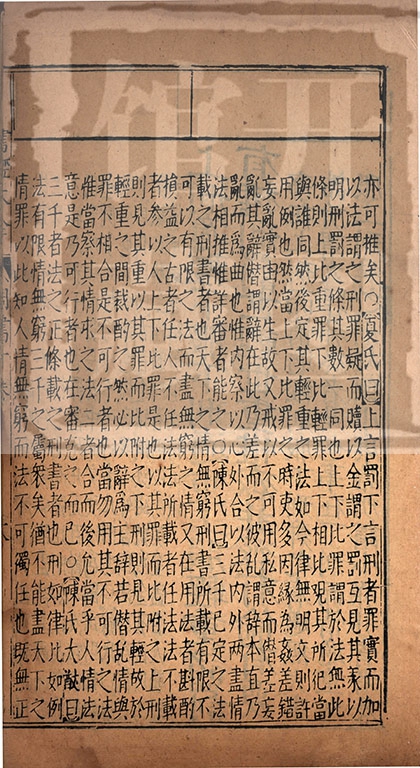 亦可推矣○夏氏曰上言罰下言刑者罪實而加
以法謂之刑罪疑而贖以金謂之罰互見其義以
明刑罰之條其數一同也上下比罪謂於法無此
條則上比重罪下比輕罪上下相比觀其所犯當
與誰同然後定其輕重之法如今律無明文則許
用例也然當上下比罪之時吏多因緣為姦差錯
妄亂實由以生故又戒以不可用私意而僭差妄
亂其辭僭謂辭在此乃差而之彼亂謂辭本直乃
亂而為曲也惟內察以心外合以法內外兩盡情
法相推惟詳審者能之○陳氏曰三千已定之法
載之刑書者也天下之情無窮刑書所載有限不
可以有限之法而盡無窮之情又在用法者斟酌
損益之古者任人不任法法所載者任法法不載
者參以人上下比罪是也以其罪而比附之上刑
則見其重以其罪而比附之下刑則見其輕故於
輕重之間裁酌之然必以辭為主辭若僭亂情與
罪不相合是不可行者也當勿用其不可行之法
惟當察其情求之法二者合而後允當乎人情法
意是乃可行者也在審克之而已○陳氏大猷曰
三千者法之正條載之刑書者也刑如律比如例
法有限情無窮三千之屬衆矣猶不能盡天下之
情罪以此知人情無窮而法不可獨任也既無正